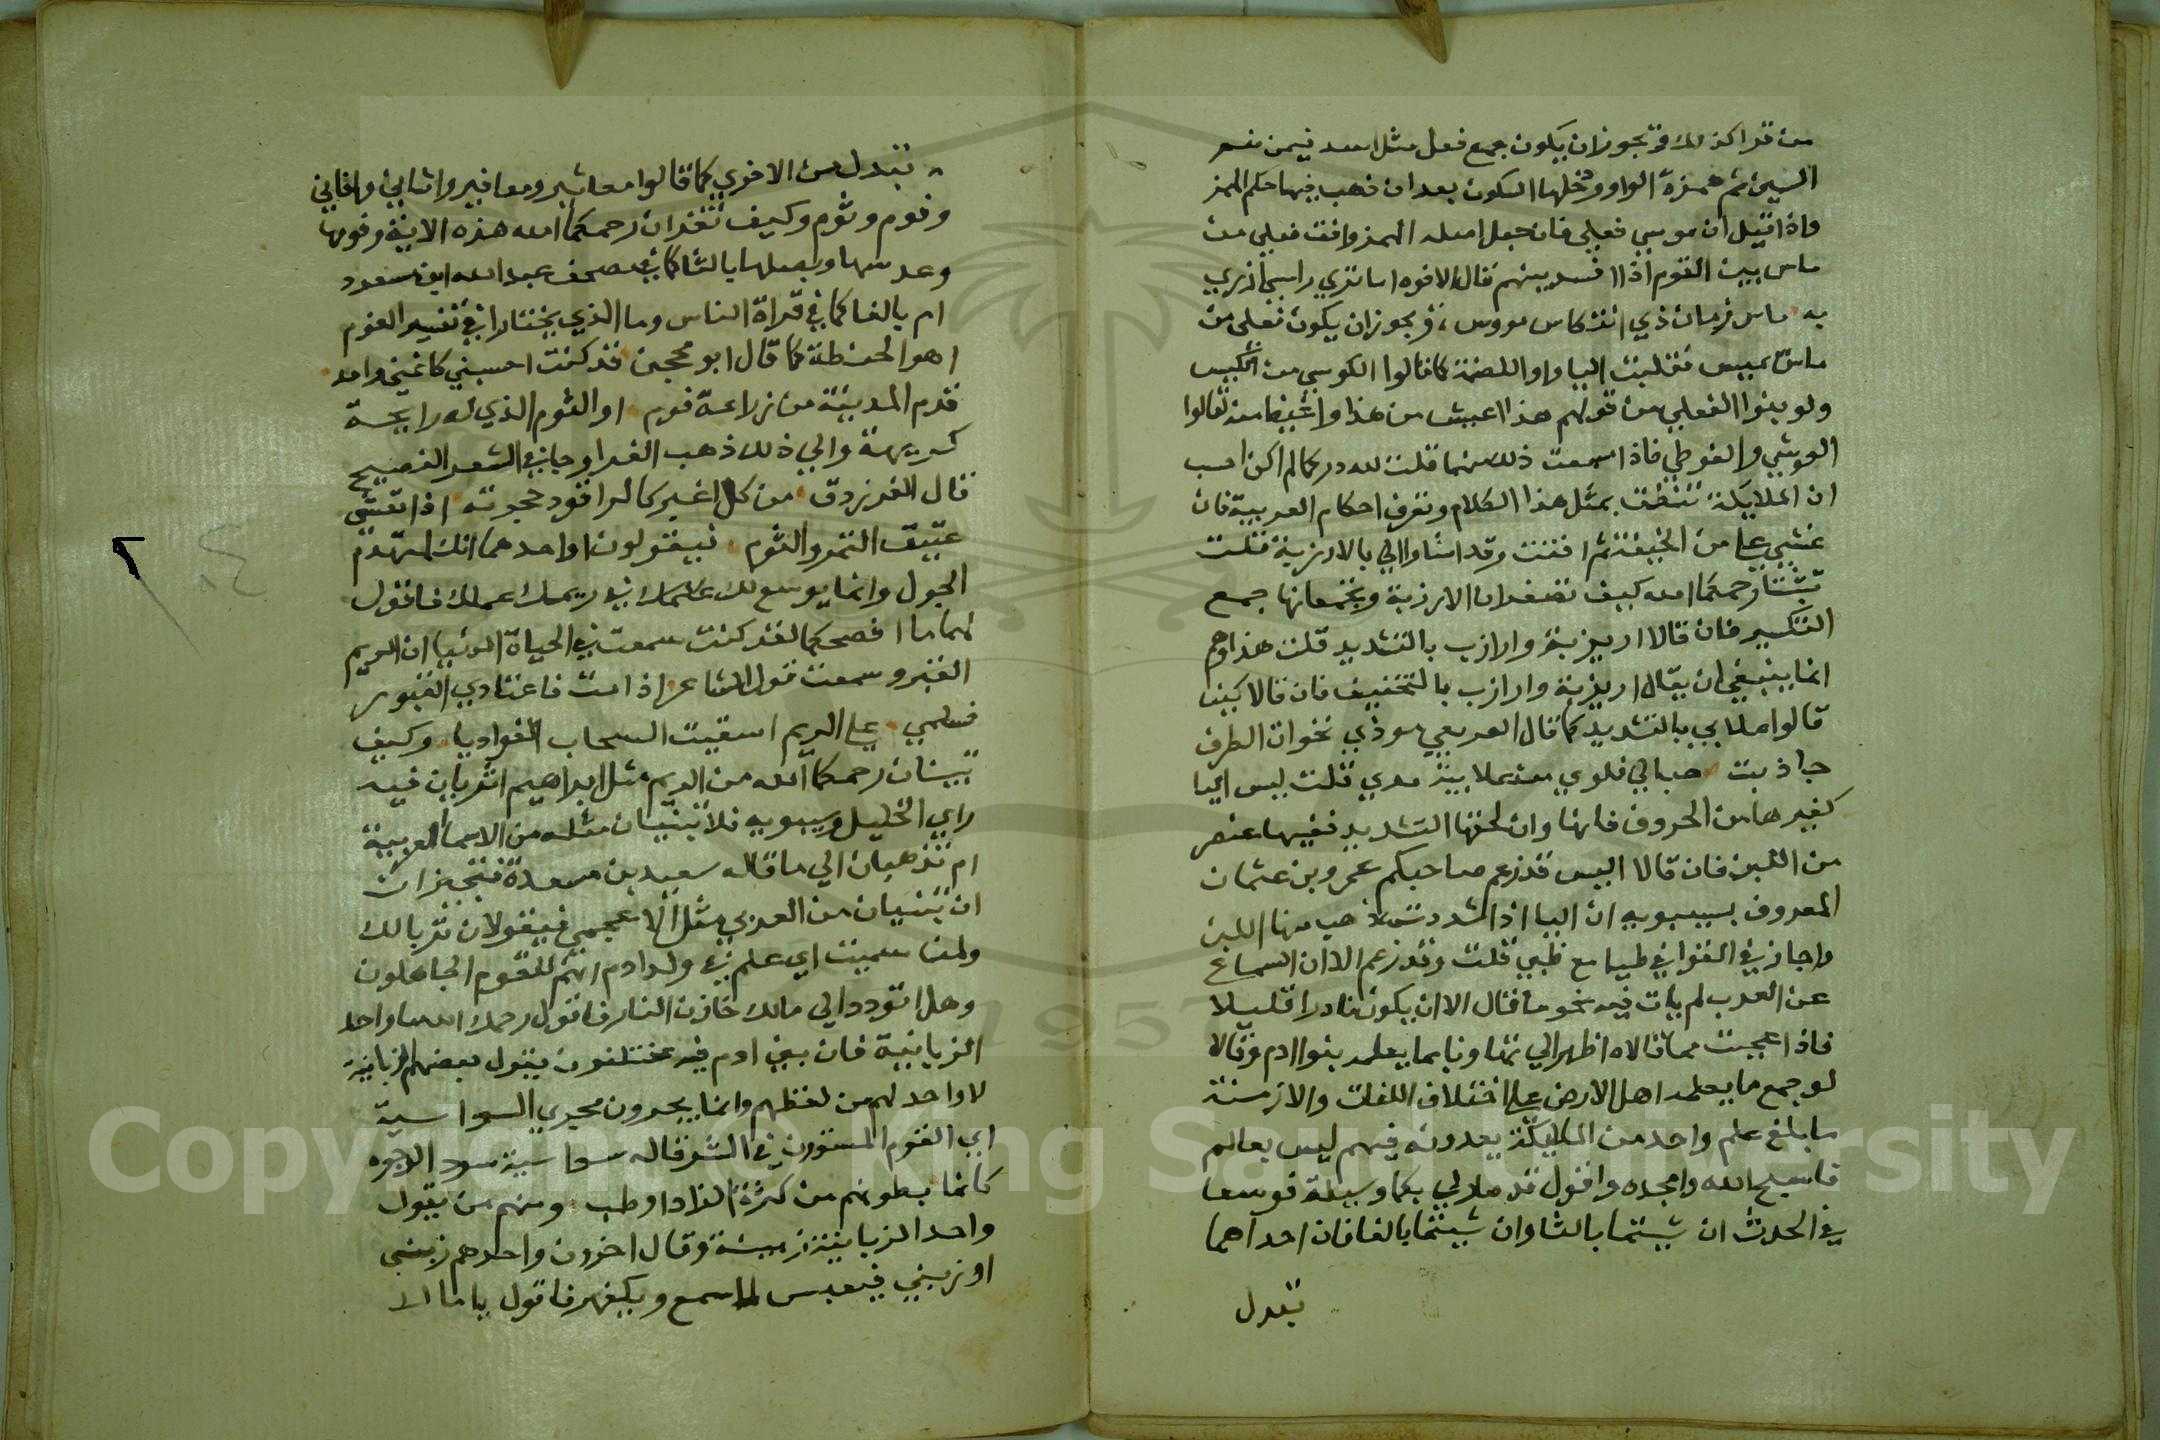 من قرا كذلك ويجوز ان يكون جمع فعل مثل اسد فيمن ضم
السين ثم همزة الواو ودخلها السكون بعد ان ذهب فيها حكم الهمز
واذا قيل ان موسي فعلي فان جعل اصله الهمز وافق فعلي من
ماس بين القوم اذا افسد بينهم قال الافوه اما تري راسي ازري
به ماس زمان ذي انتكاس مووس ويجوز ان يكون فعلي من
ماس يميس فقلبت اليا واوا للضمة كما قالوا الكوسي من الكيس
ولو بنوا الفعلي من قولهم هذا اعيش من هذا واغيظ منه لقالوا
العوشي والغوطي فاذا سمعت ذلك منهما قلت لله دركما لم اكن احسب
ان الملايكة تنطق بمثل هذا الكلام وتعرف احكام العربية فان
غشي علي من الخيفة ثم افقت وقد اشاروا الي بالارزبة فقلت
تثبتا رحمكما الله كيف تصغران الارزبة وتجمعانها جمع
التكسير فان قالا اريزبة وارازب بالتشديد قلت هذا وهم
انما ينبغي ان يقال اريزبة وارازب بالتخفيف فان قالا كيف
قالوا علابي بالتشديد كما قال القريعي وذي نخوات الطرف
جاذبت حبالي فلوي من علابيه مدي قلت ليس اليا
كغيرها من الحروف فانها وان لحقها التشديد ففيها عنصر
من اللين فان قالا اليس قد زعم صاحبكم عمرو بن عثمان
المعروف بسيبويه ان اليا اذا شددت ذهب منها اللين
واجاز في القوافي طيا مع ظبي قلت وقد زعم الا ان السماع
عن العرب لم يات فيه نحو ما قال الا ان يكون نادرا قليلا
فاذا عجبت مما قالاه اظهرا لي تهاونا بما يعلمه بنوا ادم وقالا
لو جمع ما يعلمه اهل الارض علي اختلاف اللغات والازمنة
ما بلغ علم واحد من الملايكة يعدونه فيهم ليس بعالم
فاسبح الله وامجده واقول قد صار لي بكما وسيلة فوسعا
في الجدث ان شيتما بالثا وان شيتما بالفا فان احداهما
تبدل
تبدل من الاخري كما قالوا معاثير ومعافير واثاثي واثافي
وفوم وثوم وكيف تقران رحمكما الله هذه الاية وفومها
وعدسها وبصلها بالثا كما في مصحف عبد الله ابن مسعود
ام بالفا كما في قراة الناس وما الذي يختار في تفسير الفوم
اهو الحنطة كما قال ابو محجن قد كنت احسبني كاغني واحد
قدم المدينة من زراعة فوم او الثوم الذي له رايحة
كريهة والي ذلك ذهب الفرا وجا في الشعر الفصيح
قال الفرزدق من كل اغبر كالراقود حجرته اذا تعشي
عتيق التمر والثوم فيقولون او احدهما انك لمتهدم
الجول وانما يوسع لك في ريمك عملك فاقول
لهما ما افصحكما لقد كنت سمعت في الحياة الدنيا ان الريم
القبر وسمعت قول الشاعر اذا مت فاعتادي القبور
فسلمي علي الريم اسقيت السحاب الغواديا وكيف
تبنيان رحمكما الله من الريم مثل ابراهيم اتريان فيه
راي الخليل وسيبويه فلا تبنيان مثله من الاسما العربية
ام تذهبان الي ما قاله سعيد بن مسعدة فتجيزان
ان تبنيان من العربي مثل الاعجمي فيقولان تربا لك
ولمن سميت اي علم في ولد ادم انهم للقوم الجاهلون
وهل اتودد الي مالك خازن النار فاقول رحمك الله ما واحد
الزبانية فان بني ادم فيه مختلفون يقول بعضهم الزبانية
لا واحد لهم من لفظهم وانما يجرون مجري السواسية
اي القوم المستوون في الشر قال سواسية سود الوجوه
كانما بطونهم من كثرة الزاد اوطب ومنهم من يقول
واحد الزبانية زبنية وقال اخرون واحدهم زبني
او زبني فيعبس لما سمع ويكفهر فاقول يا مال
Copyright © King Saud University
1957